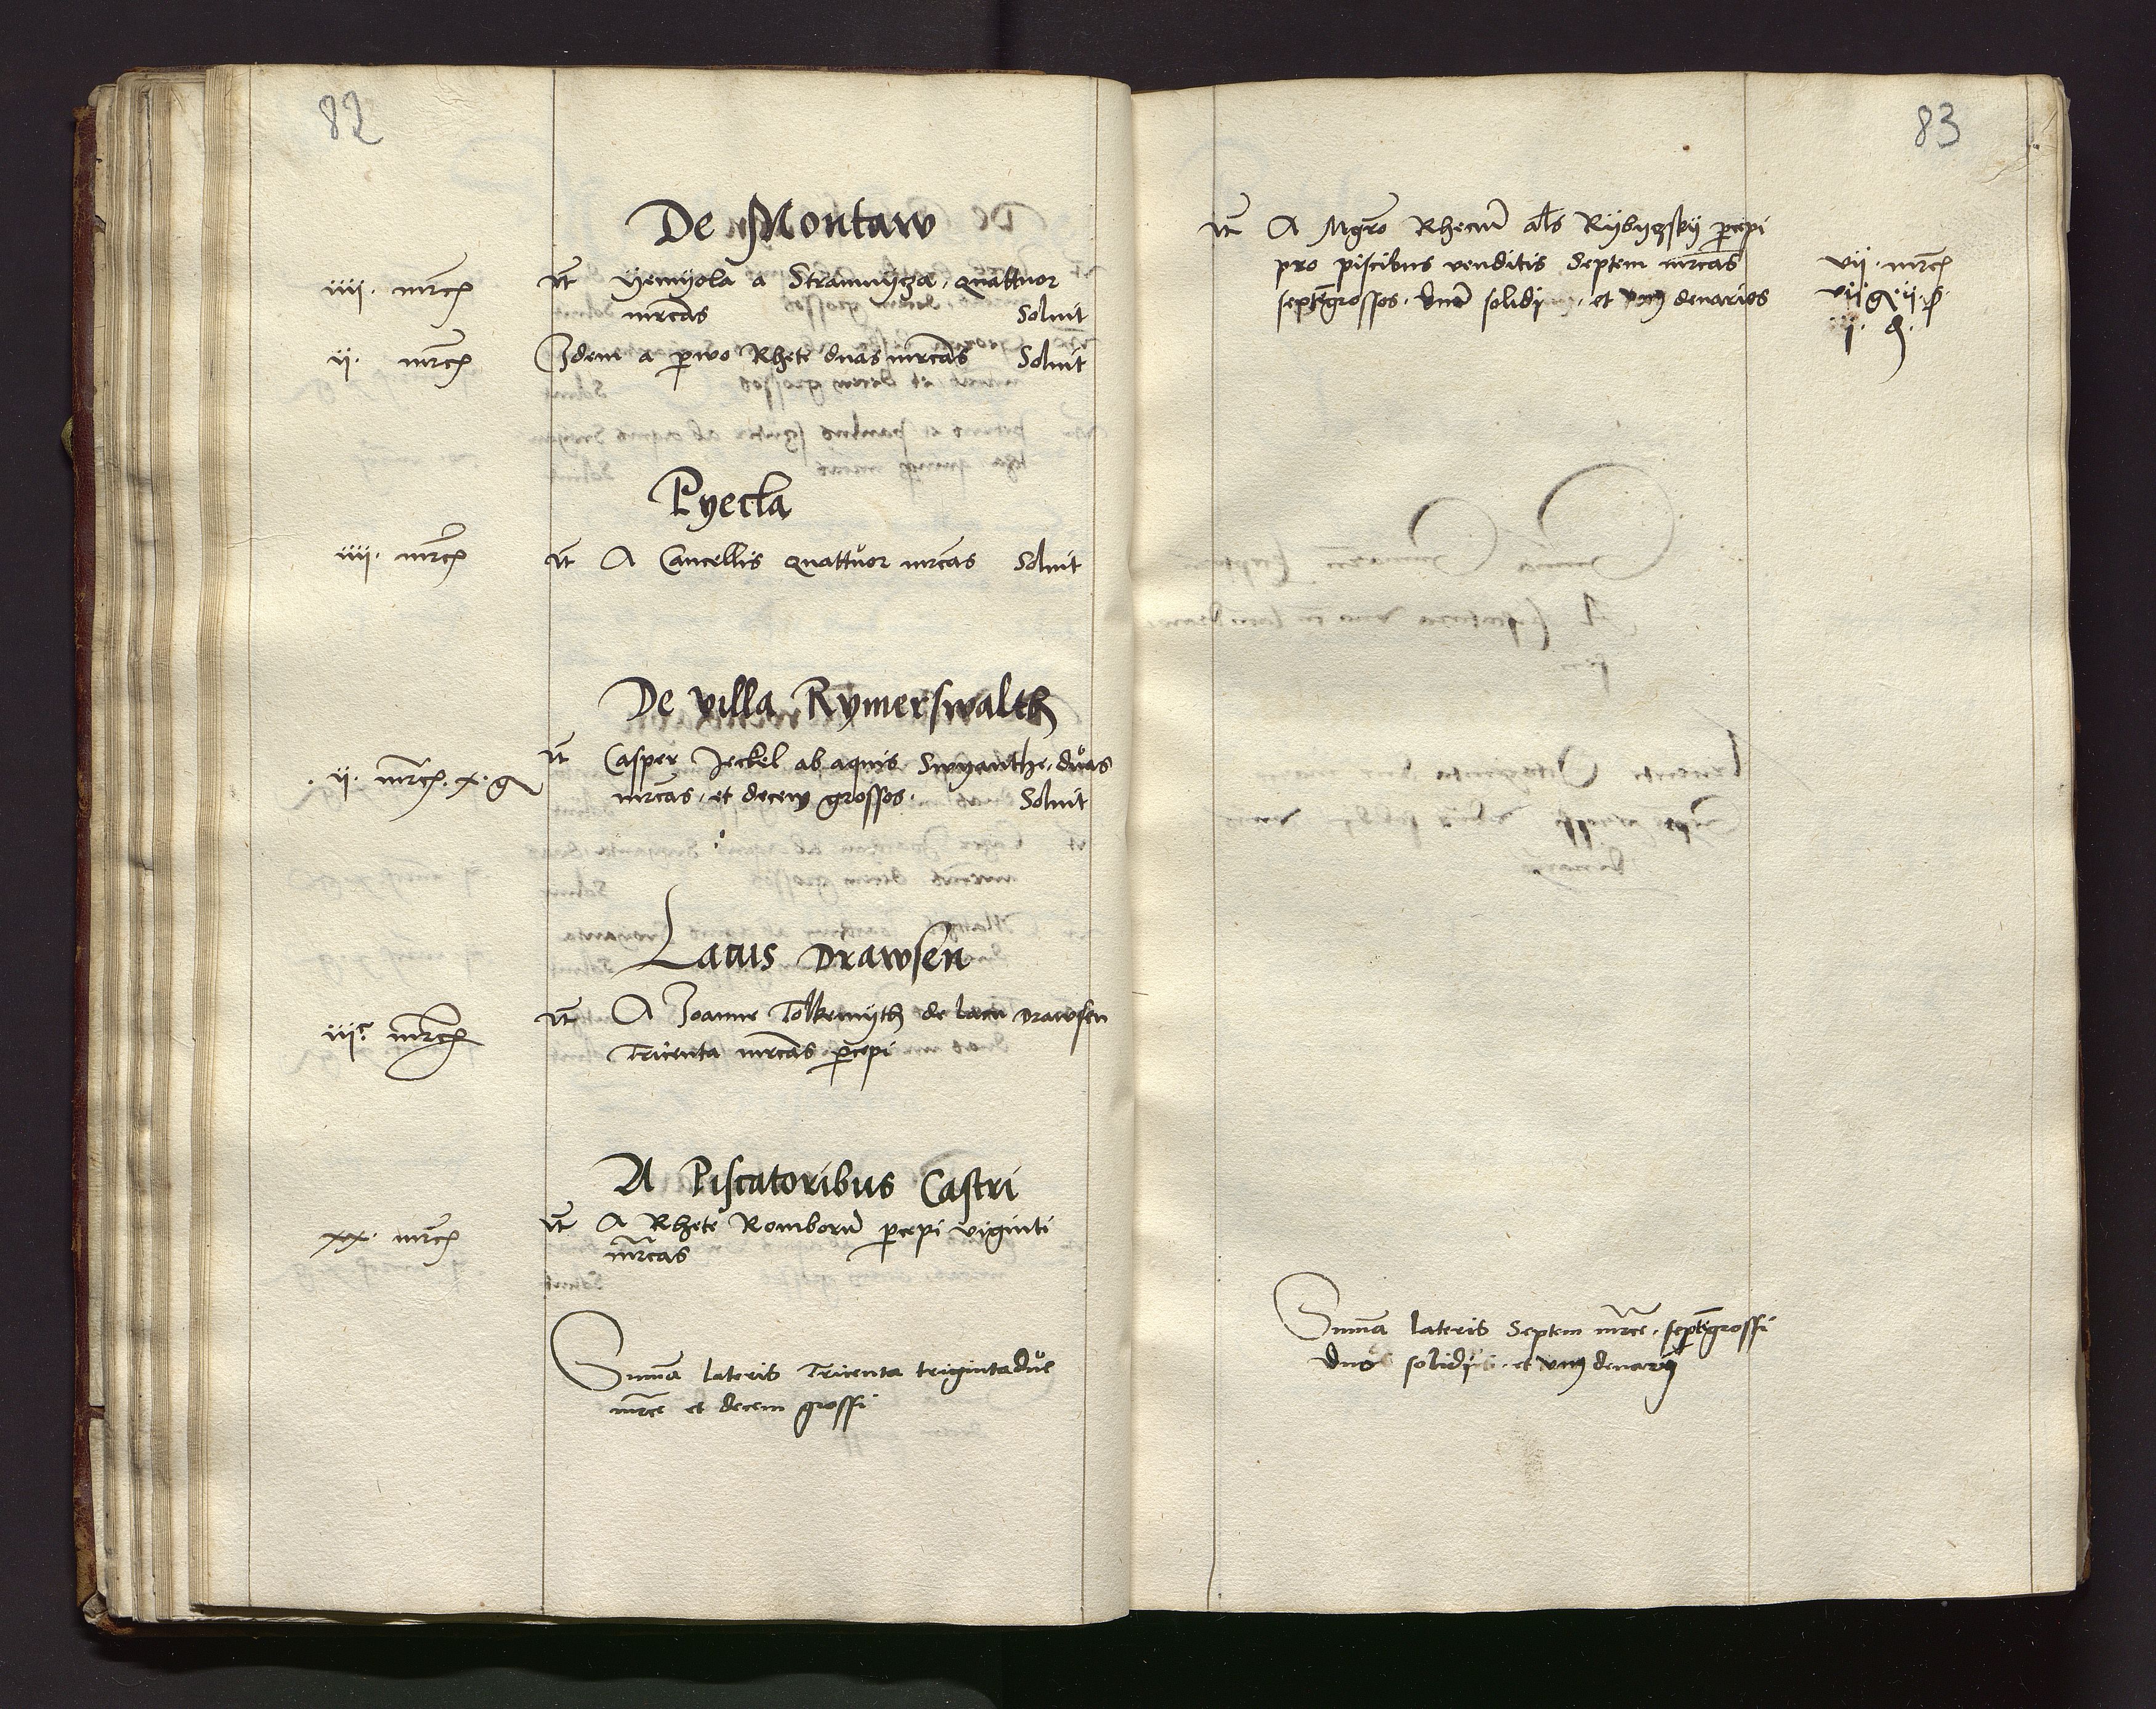 82
De Montaw
iiii. mrc̄
It̄ yemyola a Stramnyza. quattuor
mrcas Soluit
ii. mrc̄
Idem a p̄wo Rhete duas mrcas Soluit
Pyecla
iiii. mrc̄
It̄ A Cancellis quattuor mrcas Soluit
De villa Rymerswalth
. ii. mrc̄. x. g
It̄ Casper Jeckel ab aquis Swyanthe. duas
mrcas. et decem grossos. Soluit
Lacus Drawsen
iiiᶜ mrc̄
It̄ A Joanne Tolkemyth de lacu Drawsen
Tricenta mrcas p̄cepi
A Piscatoribus Castri
xx. mrc̄
It̄ A Rhete Romborū p̄cepi viginti
mrcas
Sum̄a lateris Tricenta triginta due
mrce et decem grossi
83
It̄ A Mgrō Rheciū als Rybyczky p̄cepi
pro piscibus venditis Septem mrcas vii. mrc̄
sept̄ grossos. solidi. et vnū denarios vii g. ii. s̄
i. d.
Sum̄a lateris Septem mrce. sept̄ grossi
duo solidi. et vnū denarij